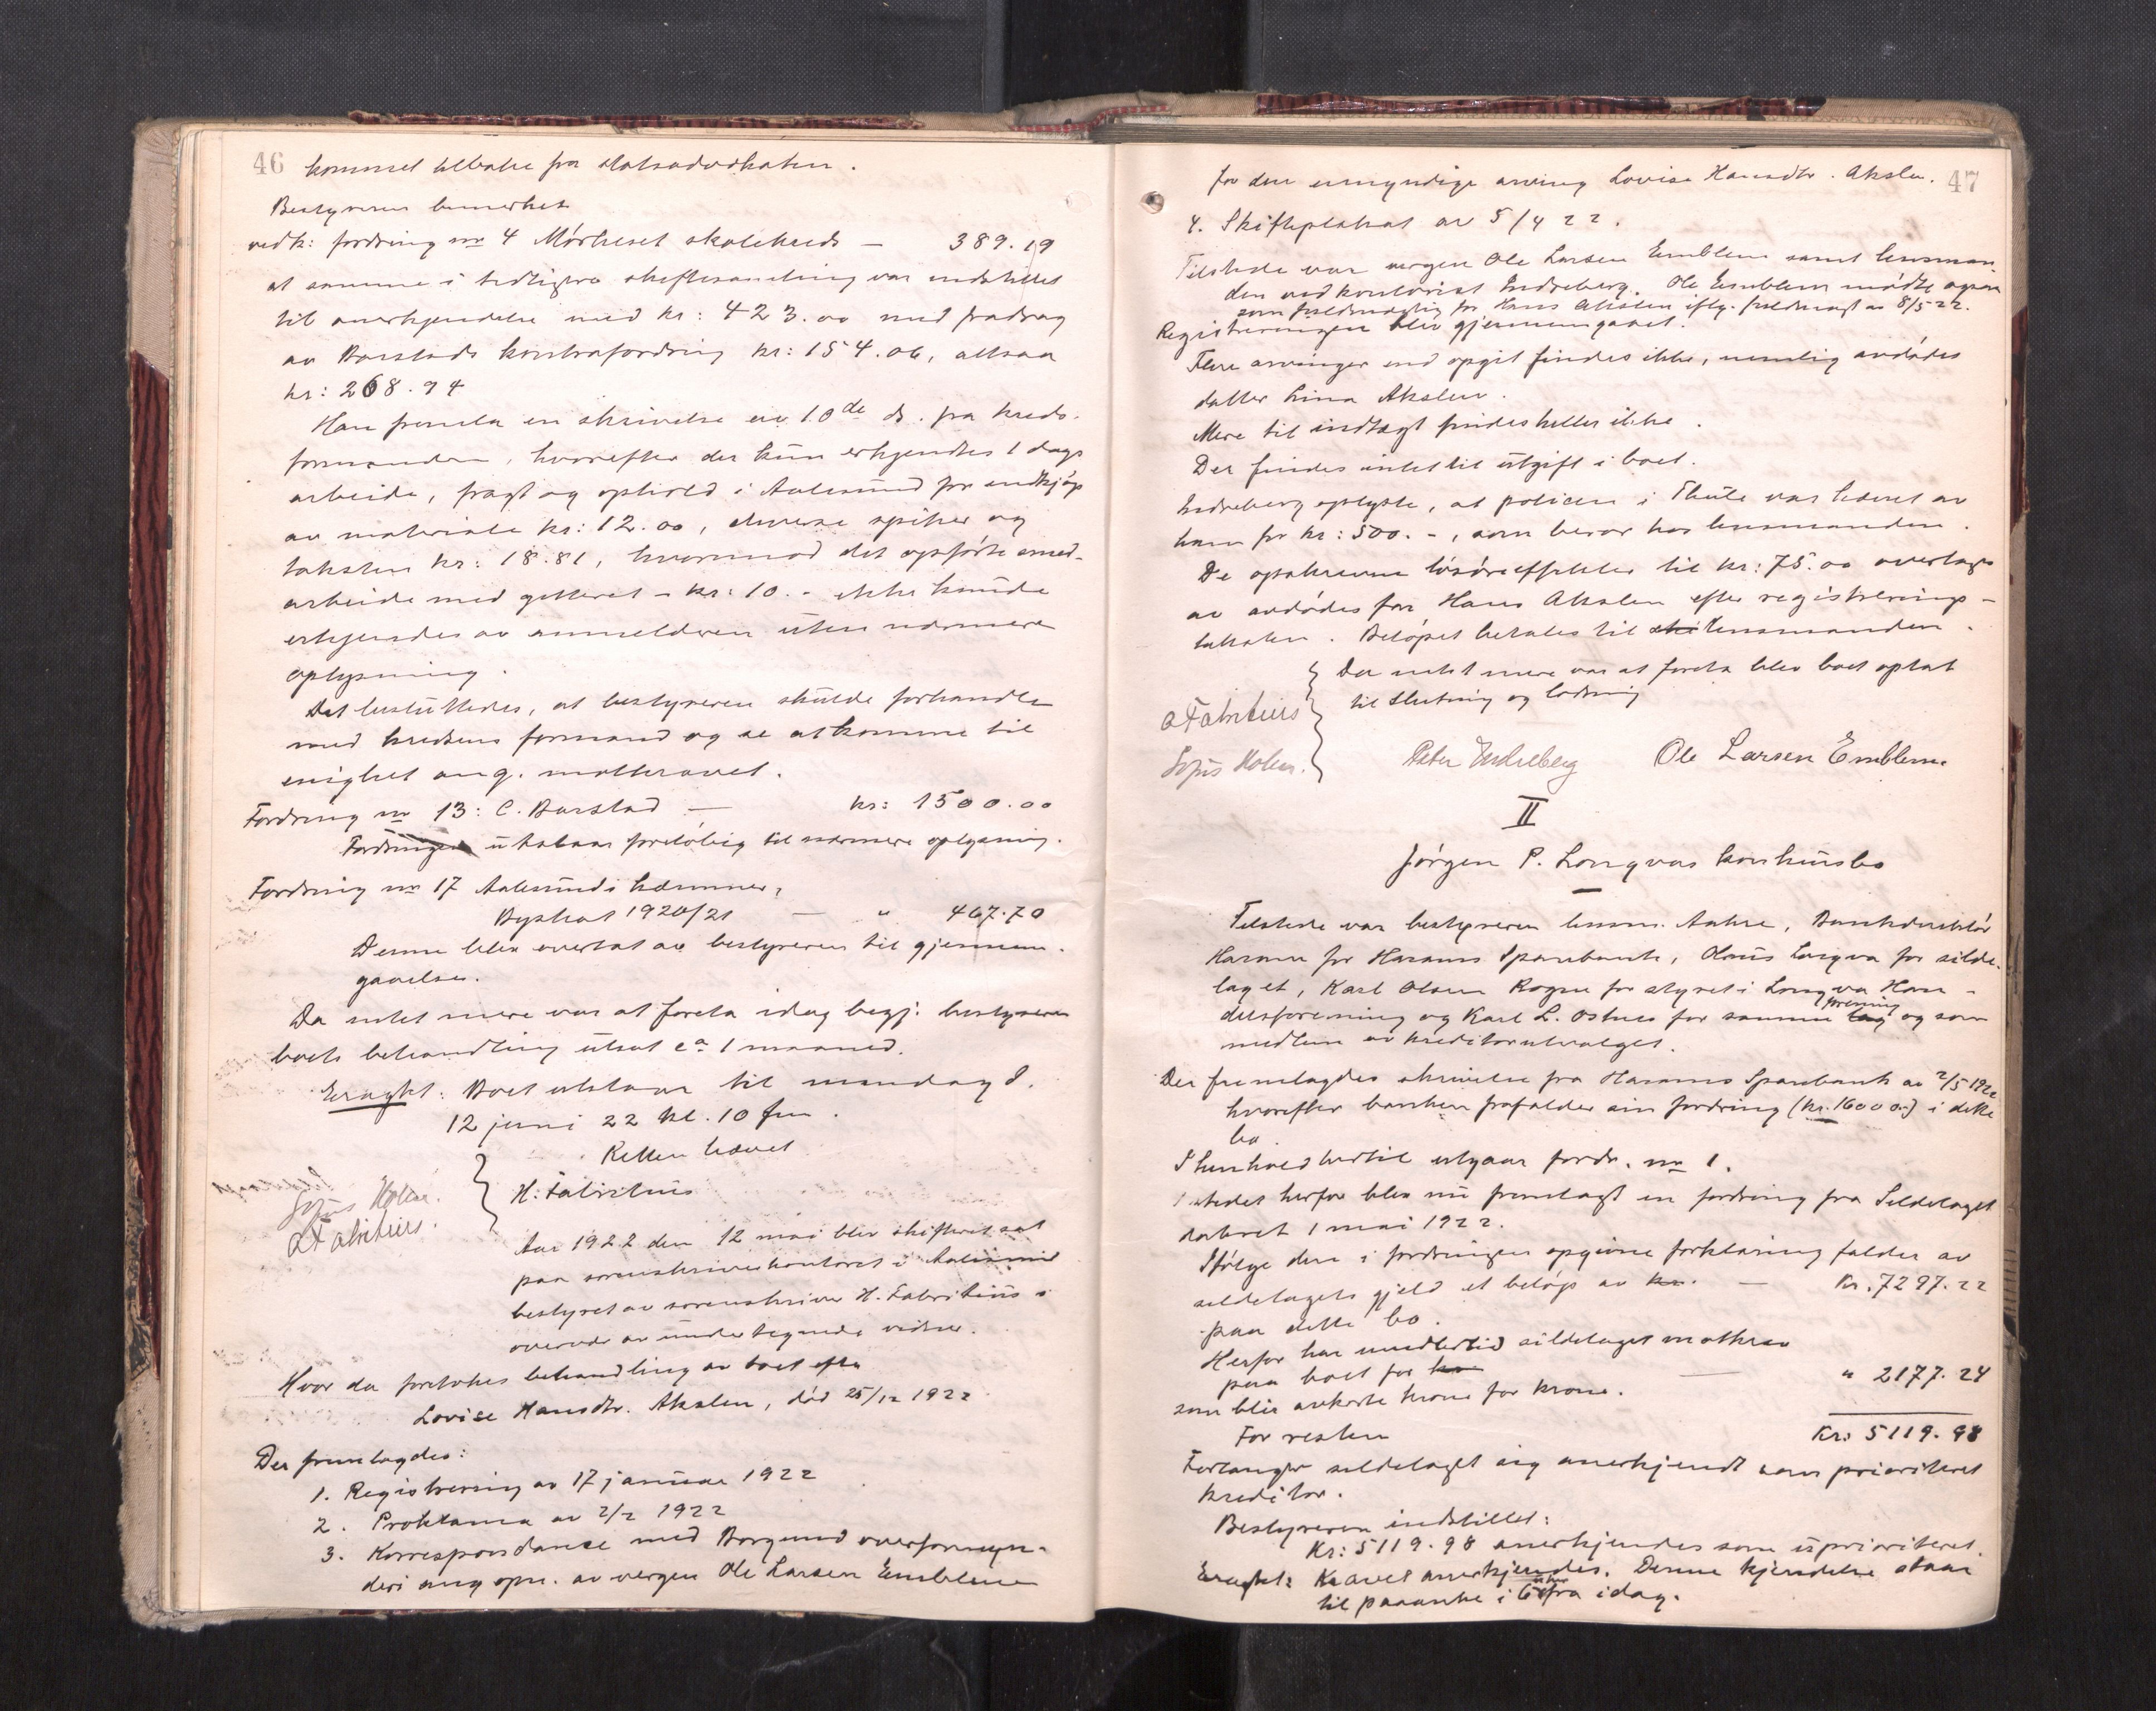 46 kommet tilbake fra statsadvokaten.
Bestyreren bemerket
vedk: fordring nr 4 Mørkeset skolekreds — 389.19
at samme i tidligere skiftesamling var indstillet
til anerkjendelse med kr: 423.00 med fradrag
av Barstads kontrafordring kr: 154.06, altsaa
kr: 268.94
Han fremla en skrivelse av 10de ds. fra kreds-
formanden, hvorefter der kun erkjendtes 1 dags
arbeide, fragt og ophold i Aalesund for indkjøp
av materiale kr: 12.00, diverse spiker og
taksten kr: 18.81, hvorimod det opførte smed-
arbeide med gitteret - kr: 10.- ikke kunde
erkjendes av anmelderen uten nærmere
oplysning.
Det besluttedes, at bestyreren skulde forhandle
med kredsens formand og se at komme til
enighet ang. motkravet.
Fordring nr 13: C. Barstad — kr: 1500.00
Fordringen utstaar foreløbig til nærmere oplysning.
Fordring nr 17 Aalesunds kæmner,
Byskat 1920/21 — " 467.70
Denne blev overlat av bestyreren til gjennem-
gaaelse.
Da intet mere var at foreta idag begj. bestyreren
boets behandling utsat ca 1 maaned.
Eragtet: Boet utstaar til mandag d.
12 juni 22 kl. 10 fm.
Retten hævet
H. Fabritius
Sofus Holm.
A Fabritius.
Aar 1922 den 12 mai blev skifteret sat
paa sorenskriverkontoret i Aalesund
bestyret av sorenskriver H. Fabritius i
overvær av undertegnede vidner.
Hvor da foretokes behandling av boet efter
Lovise Hansdtr. Akslen, død 25/12 1922
Der fremlagdes:
1. Registrering av 17 januar 1922
2. Proklama av 2/2 1922
3. Korrespondance med Borgund overformyn-
deri ang opn. av vergen Ole Larsen Emblem
for den umyndige arving Lovise Hansdtr. Akslen. 47
4. Skifteplakat av 5/4 22.
Tilstede var vergen Ole Larsen Emblem samt lensman-
den ved kontorist Indreberg. Ole Emblem mødte ogsaa
som fuldmægtig for Hans Akslen iflg. fuldmagt av 8/5 22.
Registreringen blev gjennemgaaet.
Flere arvinger end opgit findes ikke, nemlig avdødes
datter Lina Akslen.
Mere til indtægt findes heller ikke.
Der findes intet til utgift i boet.
Indreberg oplyste, at policen i Thule var hævet av
ham for kr: 500.-, som beror hos lensmanden.
De opskrevne løsøreeffekter til kr: 75.00 overtages
av avdødes far Hans Akslen efter registrerings-
taksten. Beløpet betales til ski lensmanden.
Da intet mere var at foreta blev boet optat
til slutning og lodning
A Fabritius
Sofus Holm.
Peter Indreberg Ole Larsen Emblem.
II
Jørgen P. Longvas konkursbo
Tilstede var bestyreren lensm. Aakre, Bankdirektør
Haram for Harams Sparebank, Knus Longva for silde-
laget, Karl Olsen Rogne for styret i Longva Han-
delsforening og Karl L. Ostnes for samme lag forening og som
medlem av kreditorutvalget.
Der fremlagdes skrivelse fra Harams Sparebank av 2/5 1922
hvorefter banken frafalder sin fordring (kr. 16000.-) i dette
bo.
I henhold hertil utgaar fordr. nr 1.
Istedet herfor blev nu fremlagt en fordring fra Sildelaget
datert 1 mai 1922.
Ifølge den i fordringen opgivne forklaring falder av
sildelagets gjeld et beløp av kr. — Kr. 7297.22
paa dette bo.
Herfor har imidlertid sildelaget motkrav
paa boet for kr — " 2177.24
som blir avkorte krone for krone.
For resten Kr: 5119.98
Forlanger sildelaget sig anerkjendt som prioriteret
kreditor.
Bestyreren indstillet:
Kr: 5119.98 anerkjendes som uprioriteret.
Eragtet: Kravet anerkjendes. Denne kjendelse staar
til paaanke i 6 uker fra idag.